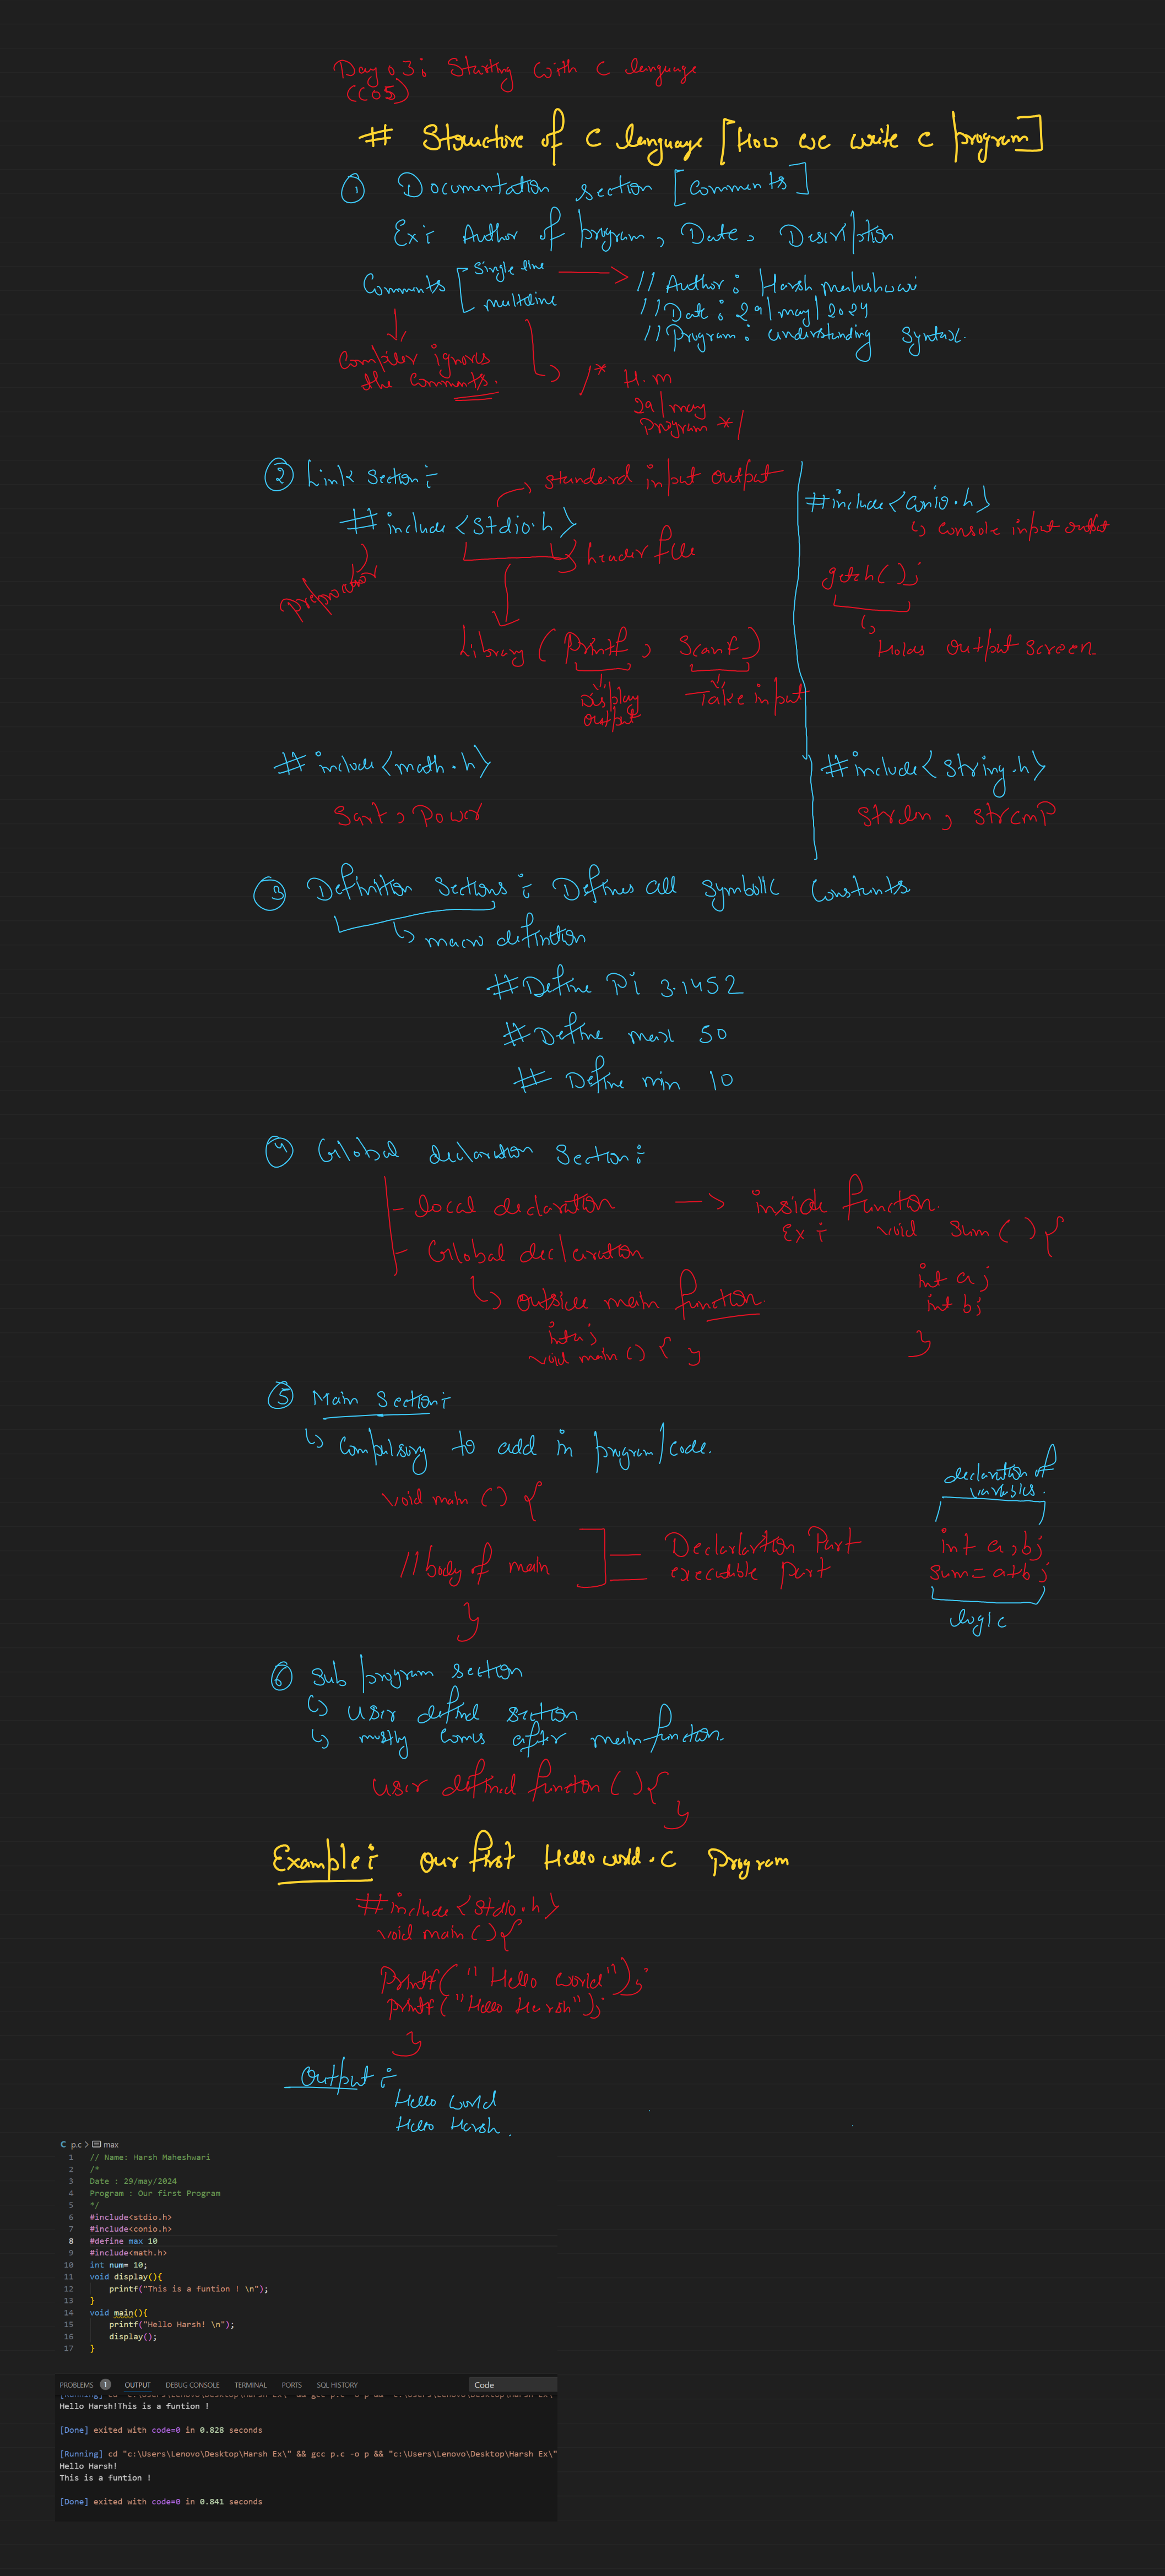 Day 03: Starting with C language
(C05)
# Structure of C language [How we write C program]
① Documentation section [Comments]
Ex:- Author of program, Date, Description
Comments
Single line
multiline
// Author: Harsh Maheshwari
// Date: 29/may/2024
// Program: understanding Syntax.
Compiler ignores
the comments.
/* H.M
29/may
Program */
② Link Section:-
standard input output
#include <stdio.h>
header file
preprocessor
Library (printf, scanf)
Display
output
Take input
#include <conio.h>
console input output
getch();
Holds output screen
#include <math.h>
Sqrt, Power
#include <string.h>
strlen, strcmp
③ Definition Sections:- Defines all symbolic constants
macro definition
#Define Pi 3.1452
#Define max 50
# Define min 10
④ Global declaration Section:-
local declaration -> inside function.
Ex:- void sum() {
int a;
int b;
}
Global declaration
outside main function.
int a;
void main() { }
⑤ Main Section:-
Compulsory to add in program/code.
void main () {
// body of main
}
Declaration Part
executible part
declaration of
variables.
int a,b;
sum = a+b;
logic
⑥ Sub program section
user defind section
mostly comes after main function.
user defined function () {
}
Example:- Our first Helloworld.C Program
#include <stdio.h>
void main () {
Printf("Hello world");
printf("Hello Harsh");
}
Output:-
Hello world
Hello Harsh.
C p.c > max
1 // Name: Harsh Maheshwari
2 /*
3 Date : 29/may/2024
4 Program : Our first Program
5 */
6 #include<stdio.h>
7 #include<conio.h>
8 #define max 10
9 #include<math.h>
10 int num= 10;
11 void display(){
12 printf("This is a funtion ! \n");
13 }
14 void main(){
15 printf("Hello Harsh! \n");
16 display();
17 }
PROBLEMS 1 OUTPUT DEBUG CONSOLE TERMINAL PORTS SQL HISTORY Code
[Running] cd "c:\Users\Lenovo\Desktop\Harsh Ex\" && gcc p.c -o p && "c:\Users\Lenovo\Desktop\Harsh Ex\"
Hello Harsh!This is a funtion !
[Done] exited with code=0 in 0.828 seconds
[Running] cd "c:\Users\Lenovo\Desktop\Harsh Ex\" && gcc p.c -o p && "c:\Users\Lenovo\Desktop\Harsh Ex\"
Hello Harsh!
This is a funtion !
[Done] exited with code=0 in 0.841 seconds